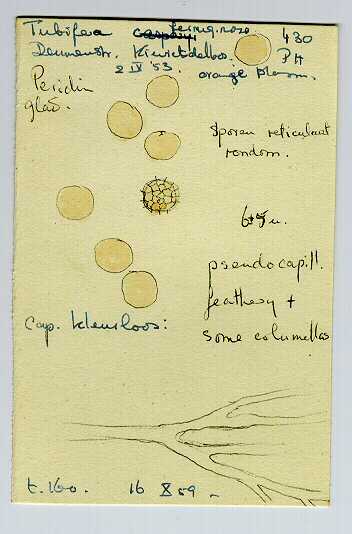 Tubifera ferruginosa 430
Dennenstr. PH
2 IX '53. orange plasm.
Peridin
glad.
Sporen reticulaat
rondom.
6-7 u.
pseudocapill.
feathery +
some columellas
Cap. kleurloos:
t. 160. 16 X 59 -